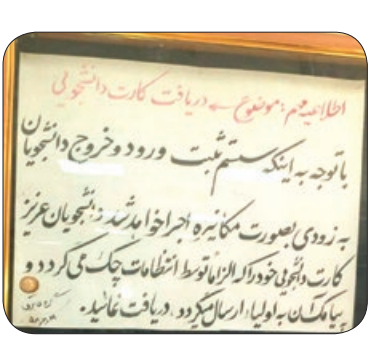 اطلاعیه مهم: موضوع ← دریافت کارت دانشجویی
با توجه به اینکه سیستم ثبت ورود و خروج دانشجویان
به زودی بصورت مکانیزه اجرا خواهد شد، دانشجویان عزیز
کارت دانشجویی خود را که الزاماً توسط انتظامات چک می گردد و
پیامک آن به اولیاء ارسال میگردد، دریافت نمائید.